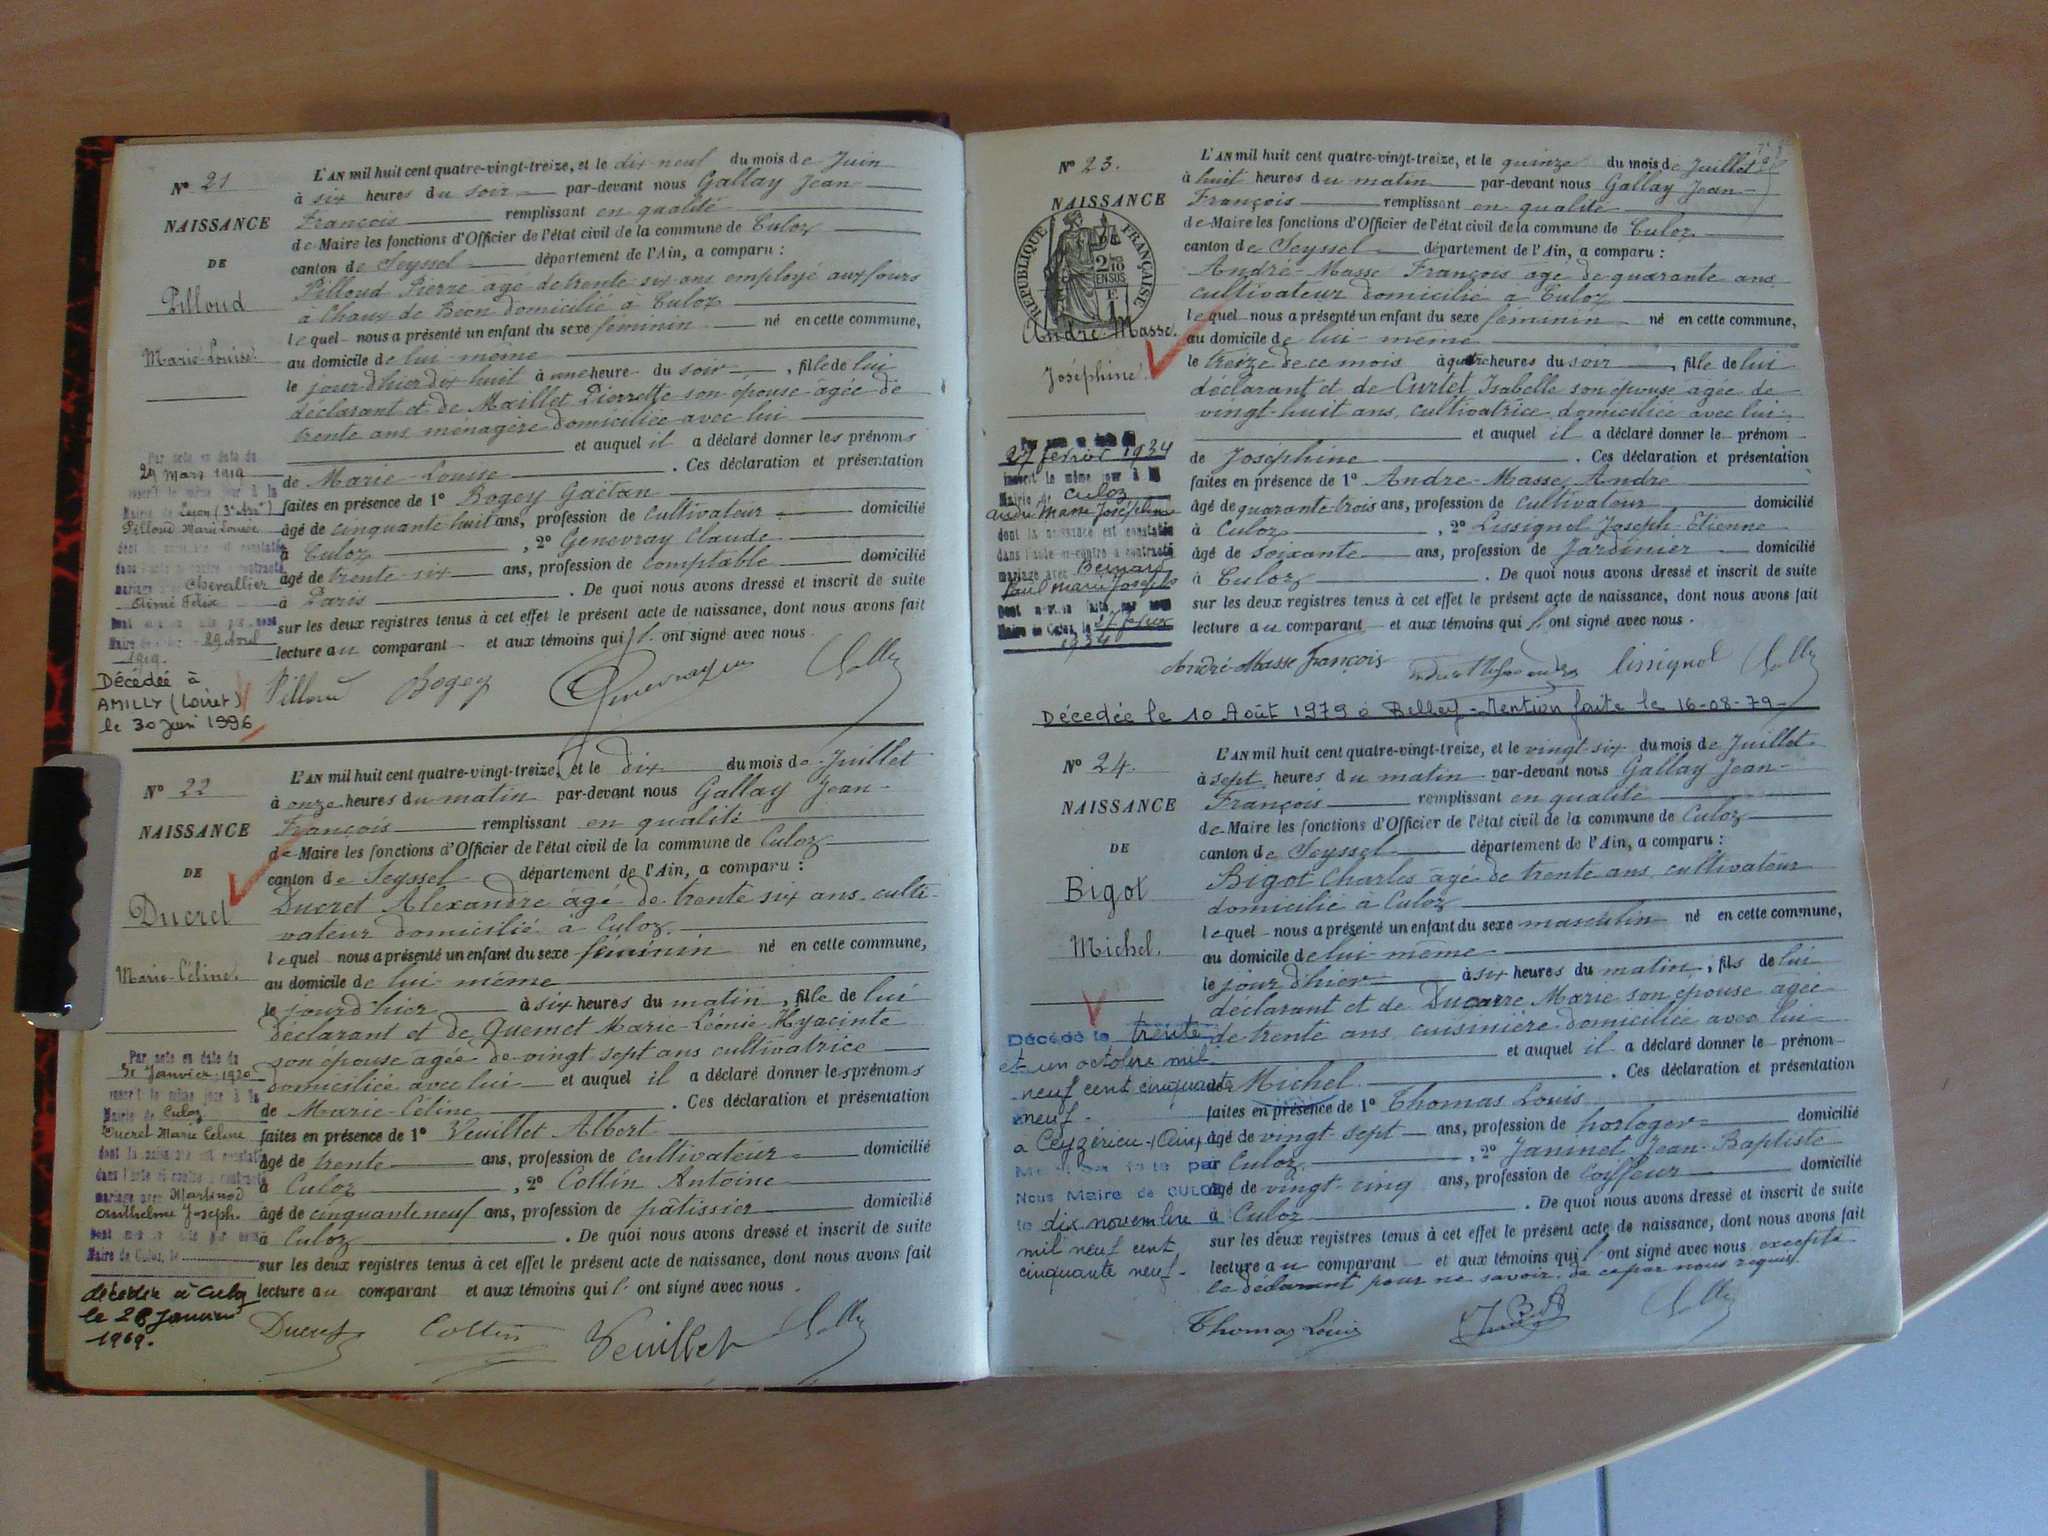 Nº 21
NAISSANCE
DE
Pilloud
Marie-Louise
L'AN mil huit cent quatre-vingt-treize, et le dix-neuf du mois de Juin
à six heures du soir par-devant nous Gallay Jean-
François remplissant en qualité
de Maire les fonctions d'Officier de l'état civil de la commune de Culoz
canton de Seyssel département de l'Ain, a comparu :
Pilloud Pierre âgé de trente six ans employé aux fours
à Chaux de Béon domicilié à Culoz
lequel nous a présenté un enfant du sexe féminin né en cette commune,
au domicile de lui-même
le jour d'hier dix huit à une heure du soir, fille de lui
déclarant et de Maillet Pierrette son épouse âgée de
trente ans ménagère domiciliée avec lui
et auquel il a déclaré donner les prénoms
de Marie-Louise. Ces déclaration et présentation
faites en présence de 1º Bogey Gaëtan
âgé de cinquante huit ans, profession de cultivateur domicilié
à Culoz, 2º Genevray Claude
âgé de trente-six ans, profession de comptable domicilié
à Paris. De quoi nous avons dressé et inscrit de suite
sur les deux registres tenus à cet effet le présent acte de naissance, dont nous avons fait
lecture au comparant et aux témoins qui ont signé avec nous.
Pilloud Bogey Genevray Gallay
Par acte en date du
29 Mars 1919
inscrit le même jour à la
Mairie de Lyon (3e Arrt)
Pilloud Marie Louise
dont la naissance est constatée
dans l'acte ci-contre a contracté
mariage avec Chevallier
Aimé Félix
29 Avril
1919.
Décédée à
AMILLY (Loiret)
le 30 Juin 1996
Nº 22
NAISSANCE
DE
Ducret
Marie-Céline
L'AN mil huit cent quatre-vingt-treize, et le dix du mois de Juillet
à onze heures du matin par-devant nous Gallay Jean-
François remplissant en qualité
de Maire les fonctions d'Officier de l'état civil de la commune de Culoz
canton de Seyssel département de l'Ain, a comparu :
Ducret Alexandre âgé de trente six ans, culti-
vateur domicilié à Culoz.
lequel nous a présenté un enfant du sexe féminin né en cette commune,
au domicile de lui même
le jour d'hier à six heures du matin, fille de lui
déclarant et de Quemet Marie Léonie Hyacinte
son épouse âgée de vingt sept ans cultivatrice
domiciliée avec lui et auquel il a déclaré donner les prénoms
de Marie-Céline. Ces déclaration et présentation
faites en présence de 1º Veuillet Albert
âgé de trente ans, profession de cultivateur domicilié
à Culoz, 2º Cottin Antoine
âgé de cinquante neuf ans, profession de pâtissier domicilié
à Culoz. De quoi nous avons dressé et inscrit de suite
sur les deux registres tenus à cet effet le présent acte de naissance, dont nous avons fait
lecture au comparant et aux témoins qui l'ont signé avec nous.
Ducret Cottin Veuillet Gallay
Par acte en date du
31 Janvier 1920
inscrit le même jour à la
Mairie de Culoz
Ducret Marie Céline
dont la naissance est constatée
dans l'acte ci-contre a contracté
mariage avec Martinod
Anthelme Joseph.
Dont mention faite par nous
Maire de Culoz, le
décédée à Culoz
le 28 Janvier
1969.
Nº 23.
NAISSANCE
RÉPUBLIQUE FRANÇAISE
2/10 EN SUS
André-Masse
Joséphine
L'AN mil huit cent quatre-vingt-treize, et le quinze du mois de Juillet
à huit heures du matin par-devant nous Gallay Jean-
François remplissant en qualité
de Maire les fonctions d'Officier de l'état civil de la commune de Culoz
canton de Seyssel département de l'Ain, a comparu :
André-Masse François âgé de quarante ans
cultivateur domicilié à Culoz
lequel nous a présenté un enfant du sexe féminin né en cette commune,
au domicile de lui-même
le treize de ce mois à quatre heures du soir, fille de lui
déclarant et de Curtet Isabelle son épouse âgée de
vingt-huit ans, cultivatrice domiciliée avec lui
et auquel il a déclaré donner le prénom
de Joséphine. Ces déclaration et présentation
faites en présence de 1º André-Masse André
âgé de quarante-trois ans, profession de cultivateur domicilié
à Culoz, 2º Lissignol Joseph-Etienne
âgé de soixante ans, profession de Jardinier domicilié
à Culoz. De quoi nous avons dressé et inscrit de suite
sur les deux registres tenus à cet effet le présent acte de naissance, dont nous avons fait
lecture au comparant et aux témoins qui l'ont signé avec nous.
André-Masse François lissignol Gallay
Par acte en date du
27 février 1934
inscrit le même jour à la
Mairie de Culoz
André Masse Joséphine
dont la naissance est constatée
dans l'acte ci-contre a contracté
mariage avec Bernard
Paul Marie Joseph
Dont mention faite par nous
Maire de Culoz, le 27 février
1934
Décédée le 10 Août 1979 à Belley - Mention faite le 16-08-79
Nº 24.
NAISSANCE
DE
Bigot
Michel.
L'AN mil huit cent quatre-vingt-treize, et le vingt-six du mois de Juillet
à sept heures du matin par-devant nous Gallay Jean-
François remplissant en qualité
de Maire les fonctions d'Officier de l'état civil de la commune de Culoz
canton de Seyssel département de l'Ain, a comparu :
Bigot Charles âgé de trente ans, cultivateur
domicilié à Culoz
lequel nous a présenté un enfant du sexe masculin né en cette commune,
au domicile de lui-même
le jour d'hier à six heures du matin, fils de lui
déclarant et de Ducarre Marie son épouse âgée
de trente ans cuisinière domiciliée avec lui
et auquel il a déclaré donner le prénom
de Michel. Ces déclaration et présentation
faites en présence de 1º Thomas Louis
âgé de vingt-sept ans, profession de horloger domicilié
à Culoz, 2º Janinet Jean-Baptiste
âgé de vingt-cinq ans, profession de Coiffeur domicilié
à Culoz. De quoi nous avons dressé et inscrit de suite
sur les deux registres tenus à cet effet le présent acte de naissance, dont nous avons fait
lecture au comparant et aux témoins qui l'ont signé avec nous excepté
le déclarant pour ne savoir de ce par nous requis.
Thomas Louis Gallay
Décédé le trente
et un octobre mil
neuf cent cinquante
neuf
à Ceyzérieu (Ain)
Mention faite par
Nous Maire de CULOZ
le dix novembre
mil neuf cent
cinquante neuf